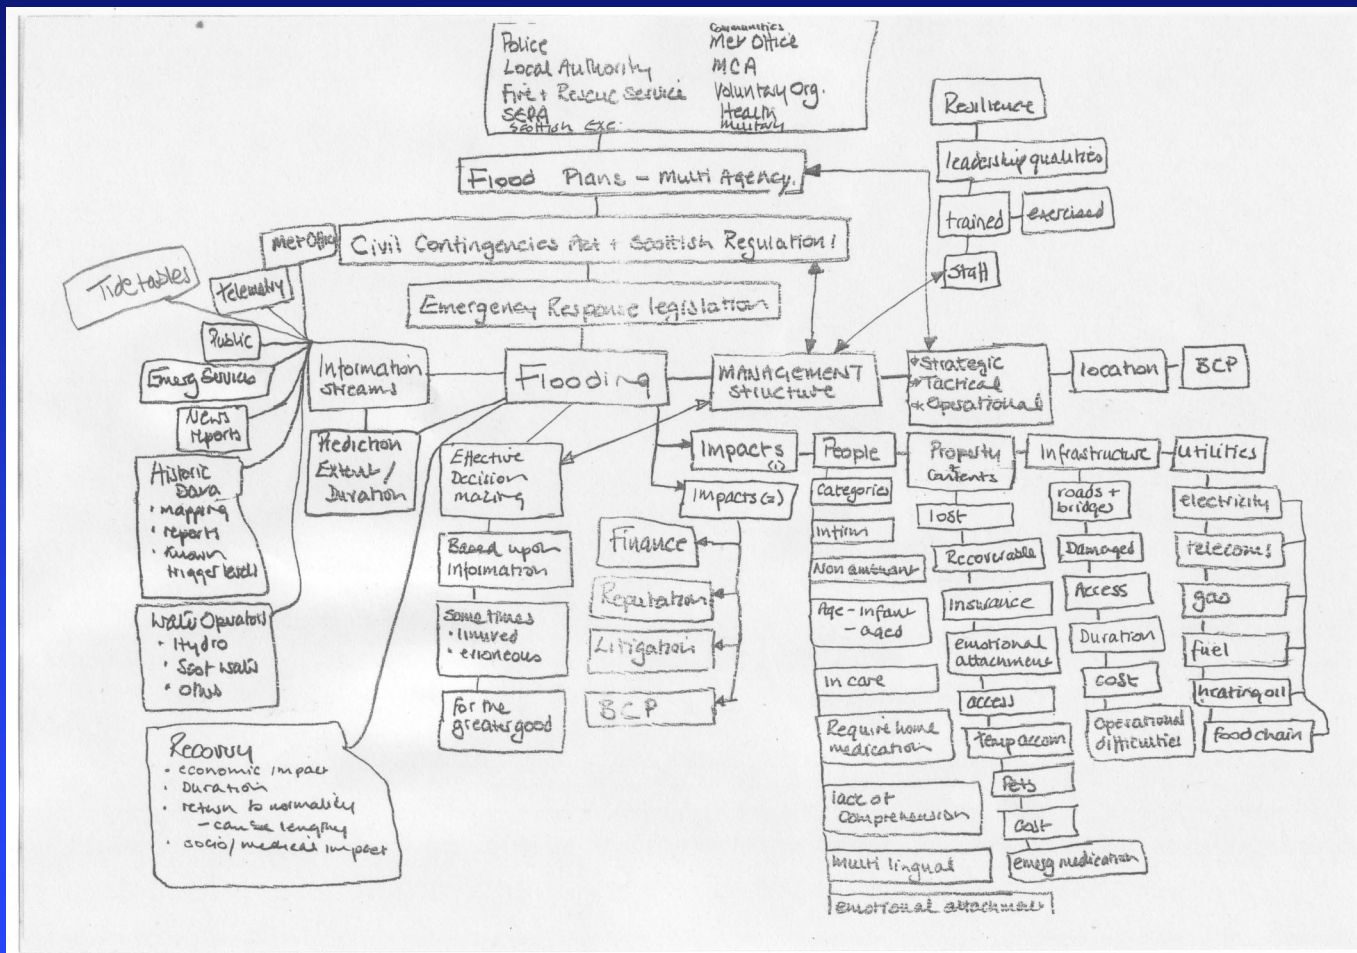 Police
Local Authority
Fire + Rescue Service
SEPA
Scottish Exe.
Communities
Met Office
MCA
Voluntary Org.
Health
Military
Flood Plans - Multi Agency.
Civil Contingencies Act + Scottish Regulation!
Emergency Response legislation
Resilience
leadership qualities
trained
exercised
Staff
Met Office
Tide tables
Telemetry
Public
Emerg Services
News
reports
Historic
Data
• mapping
• reports
• Known
trigger levels
Water Operators
• Hydro
• Scot water
•
Information
streams
Prediction
Extent /
Duration
Flooding
MANAGEMENT
Structure
* Strategic
* Tactical
* Operational
location
BCP
Effective
Decision
making
Based upon
information
sometimes
• limited
• erroneous
for the
greater good
Recovery
• economic impact
• Duration
• return to normality
- can be lengthy
• socio/medical impact
Impacts
(1)
Impacts (2)
Finance
Reputation
Litigation
BCP
People
Categories
Infirm
Non ambulant
Age - infant
- aged
In care
Require home
medication
lack of
Comprehension
multi lingual
emotional attachment
Property
+
Contents
lost
Recoverable
Insurance
emotional
attachment
access
temp accom
Pets
cost
emerg medication
Infrastructure
roads +
bridges
Damaged
Access
Duration
cost
Operational
difficulties
Utilities
electricity
telecoms
gas
fuel
heating oil
food chain